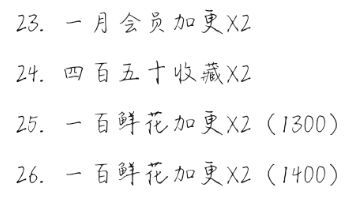 23. 一月会员加更X2
24. 四百五十收藏X2
25. 一百鲜花加更X2（1300）
26. 一百鲜花加更X2（1400）